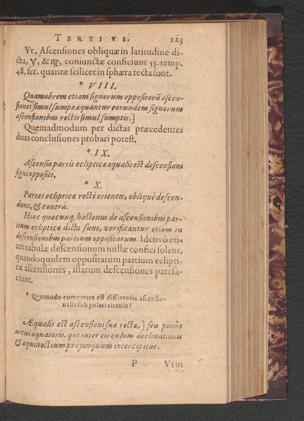 TERTIVS. 225
Vt, Ascensiones obliquæ in latitudine di-
cta, ♉, & ♍, coniunctæ conficiunt 55. temp.
48. scr. quantæ scilicet in sphæra recta sunt.
* VIII.
Quamobrem etiam signorum oppositorū ascen-
siones simul sumptæ æquantur eorundem signorum
ascensionibus rectis simul sumptis.]
Quemadmodum per dictas præcedentes
duas conclusiones probari potest.
* IX.
Ascensio partis eclipticæ æqualis est descensioni
sigui oppositi.
* X.
Partes eclipticæ rectè orientes, obliquè descen-
dunt, & contrà.
Hinc quacunq; hactenus de ascensionibus par-
tium eclipticæ dicta sunt, verificantur etiam in
descensionibus partium oppositarum. Idcircò eti-
am tabulæ descensionum nullæ confici solent,
quandoquidem oppositarum partium eclipti-
cæ ascensiones, illarum descensiones patefa-
ciunt.
* Quomodo comparata est differentia ascensio-
nalis sub polari circulo?
Æqualis est ascensioni suæ rectæ,] seu potius
arcui æquatoris, qui inter circulum declinationis
& æquinoctium propinquum intercipitur.
P Vtin